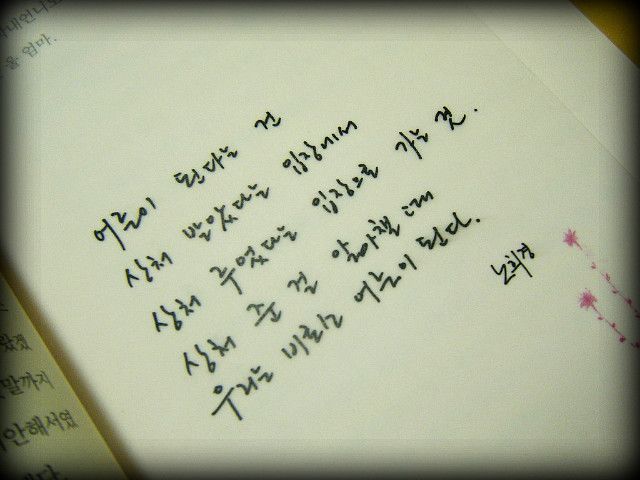 울 엄마.
어른이 된다는 건
상처 받았다는 입장에서
상처 주었다는 입장으로 가는 것.
상처 준 걸 알아챌 때
우리는 비로소 어른이 된다.
노희경
말까지
안해서였